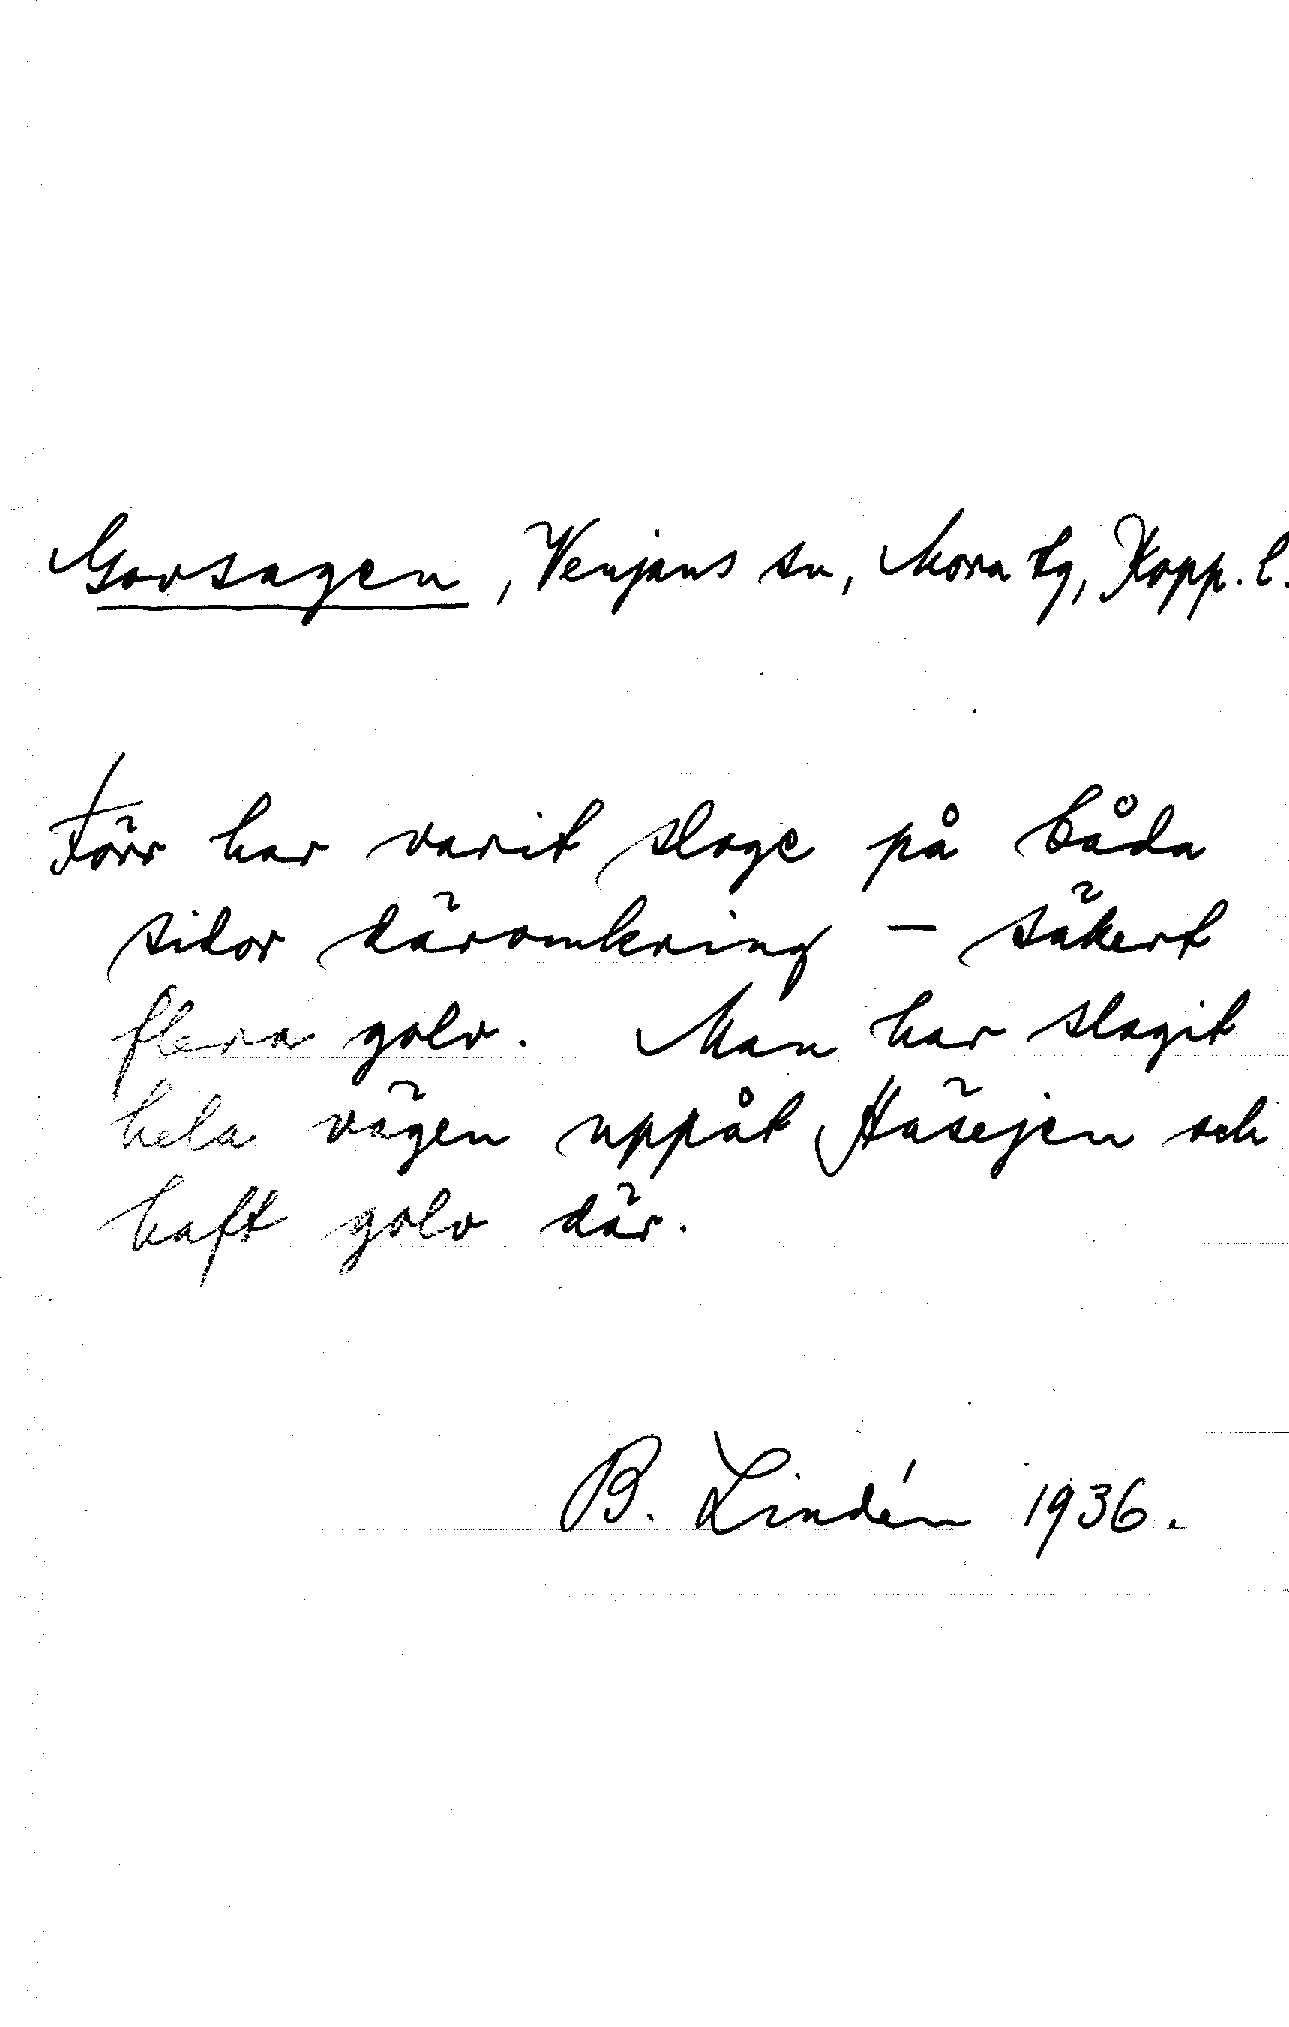 Gorsagen, Venjans sn, Mora tg, Kopp. l.
Förr har varit sloge på båda
sidor däromkring – säkert
flera golv. Man har slagit
hela vägen uppåt Häsejen och
haft golv där.
B. Lindén 1936.